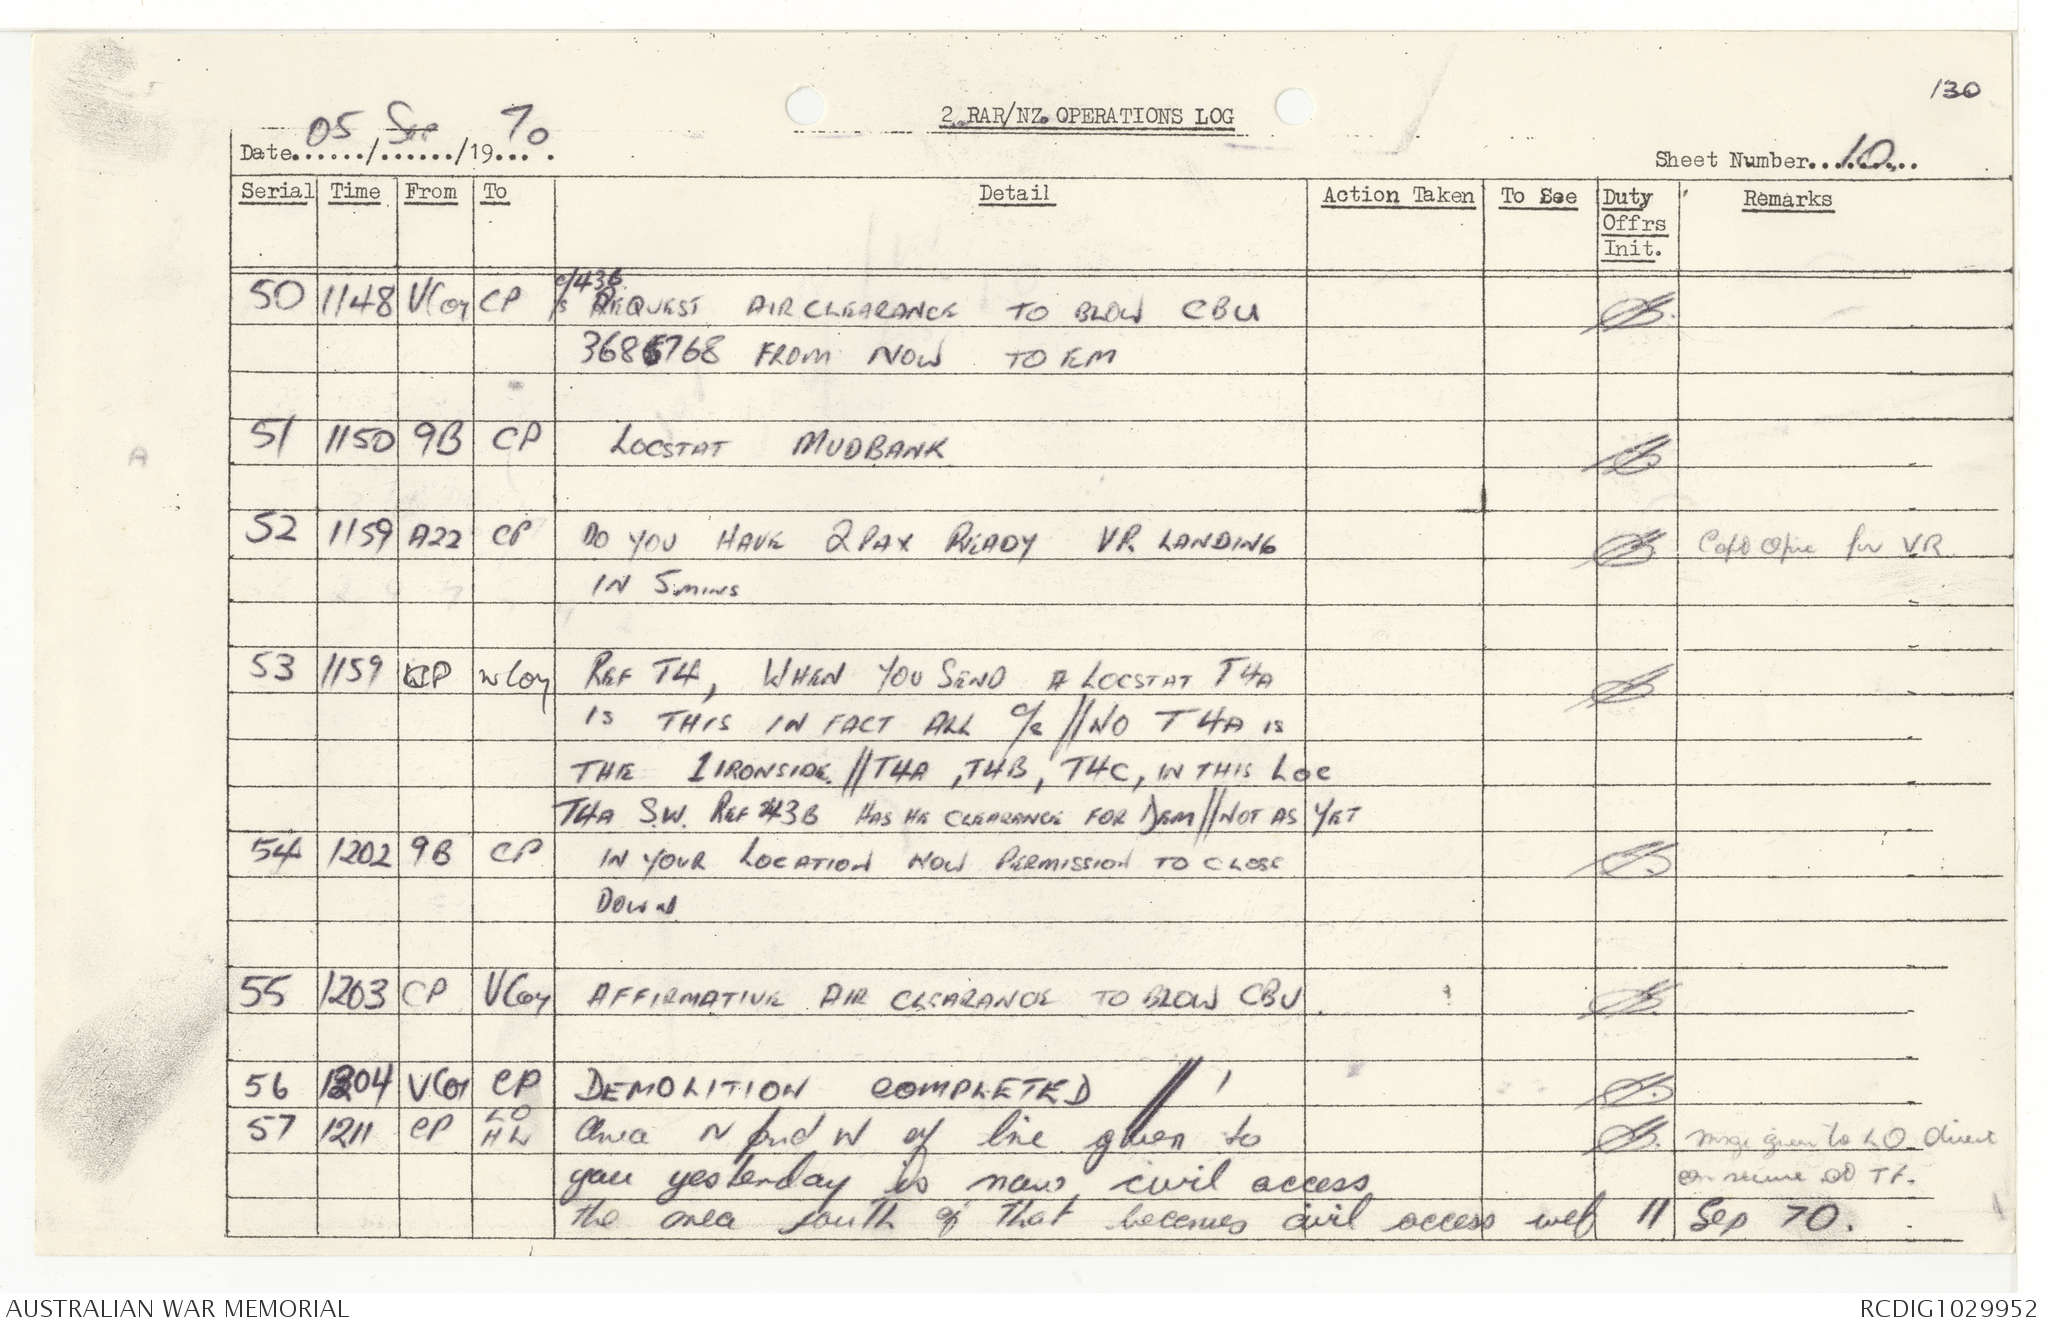 130
2 RAR/NZ OPERATIONS LOG
Date 05/Sep/1970.
Sheet Number 10
Serial Time From To Detail Action Taken To See Duty Offrs Init. Remarks
50 1148 VCoy CP c/s 43B REQUEST AIR CLEARANCE TO BLOW CBU
3686768 FROM NOW TO EM
51 1150 9B CP LOCSTAT MUDBANK
52 1159 A22 CP DO YOU HAVE 2 PAX READY VR LANDING for VR
IN 5 MINS
53 1159 CP WCoy REF T4, WHEN YOU SEND A LOCSTAT T4A
IS THIS IN FACT ALL c/s // NO T4A IS
THE 1 IRONSIDE // T4A, T4B, T4C, IN THIS LOC
T4A S.W. REF 43B HAS HE CLEARANCE FOR DEM // NOT AS YET
54 1202 9B CP IN YOUR LOCATION NOW PERMISSION TO CLOSE
DOWN
55 1203 CP VCoy AFFIRMATIVE AIR CLEARANCE TO BLOW CBU
56 1204 VCoy CP DEMOLITION COMPLETED //
57 1211 CP LO Area N and W of line given to msge given to LO direct
you yesterday is now civil access on secure
the area south of that becomes civil access wef 11 Sep 70.
AUSTRALIAN WAR MEMORIAL
RCDIG1029952